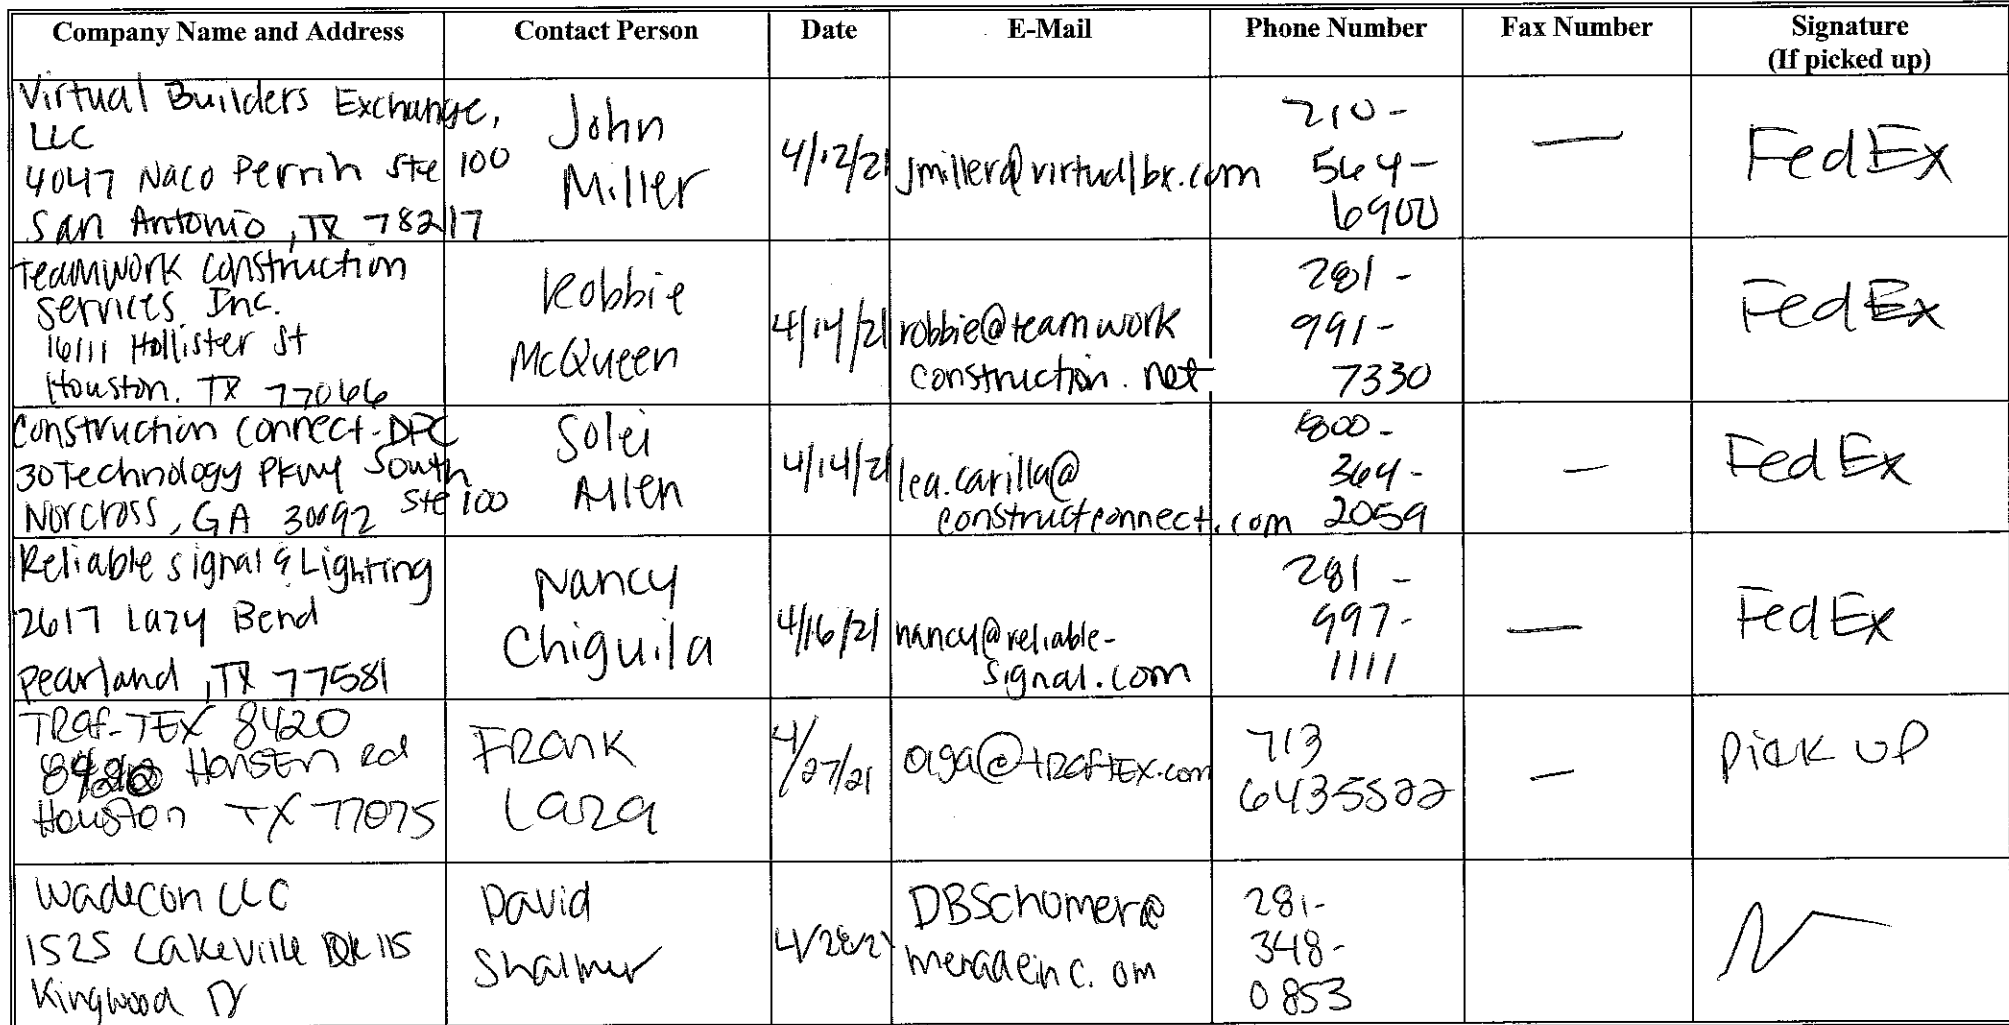 Company Name and Address Contact Person Date E-Mail Phone Number Fax Number Signature
(If picked up)
Virtual Builders Exchange,
LLC
4047 Naco Perrin Ste 100
San Antonio, TX 78217
John
Miller
4/12/21
jmiller@virtualbx.com
210-
564-
6900
—
FedEx
Teamwork Construction
Services, Inc.
16111 Hollister St
Houston, TX 77066
Robbie
McQueen
4/14/21
robbie@teamwork
construction.net
281-
991-
7330
FedEx
Construction Connect-DPC
30 Technology Pkwy South
Ste 100
Norcross, GA 30092
Solei
Allen
4/14/21
lea.carilla@
constructconnect.com
800-
364-
2059
—
FedEx
Reliable Signal & Lighting
2617 Lazy Bend
Pearland, TX 77581
Nancy
Chiguila
4/16/21
nancy@reliable-
signal.com
281-
997-
1111
—
FedEx
TRaf-TEX 8420
Houston Rd
Houston TX 77075
FRank
Laza
4/27/21
olga@tRaftEX.com
713
6435522
—
Pick UP
Wadecon LLC
1525 Lakeville DR 115
Kingwood TX
David
4/28/21
DBSchomer@
281-
348-
0853